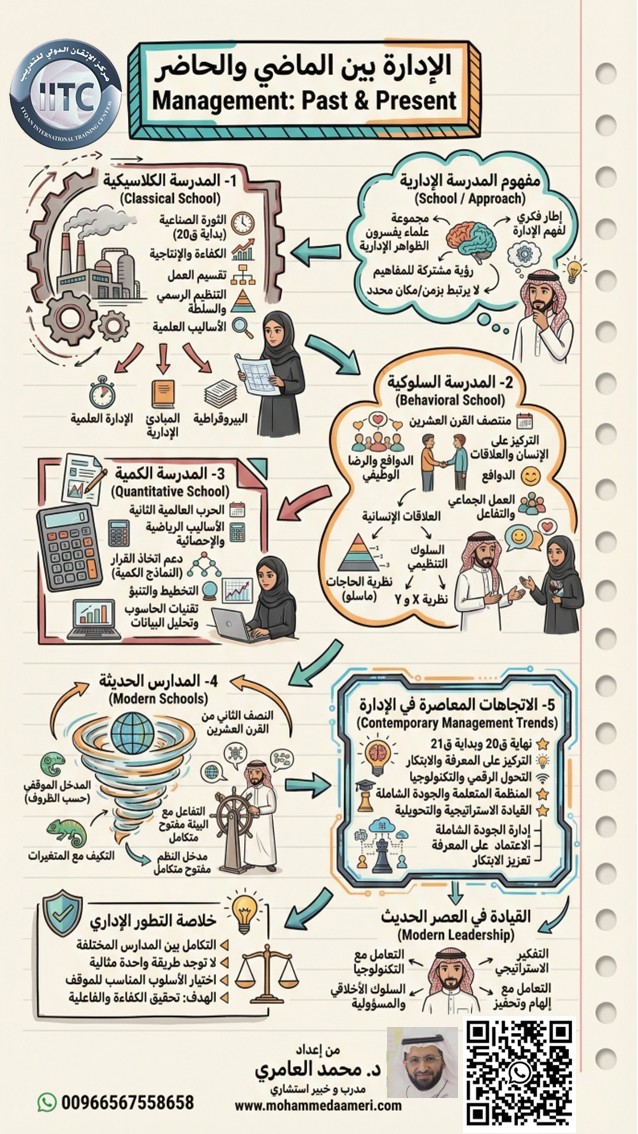 مركز الإتقان الدولي للتدريب
IITC
ITQAN INTERNATIONAL TRAINING CENTER
الإدارة بين الماضي والحاضر
Management: Past & Present
مفهوم المدرسة الإدارية
(School / Approach)
إطار فكري
لفهم الإدارة
مجموعة
علماء يفسرون
الظواهر الإدارية
رؤية مشتركة للمفاهيم
لا يرتبط بزمن/مكان محدد
1- المدرسة الكلاسيكية
(Classical School)
الثورة الصناعية
(بداية ق20)
الكفاءة والإنتاجية
تقسيم العمل
التنظيم الرسمي
والسلطة
الأساليب العلمية
البيروقراطية
المبادئ
الإدارية
الإدارة العلمية
2- المدرسة السلوكية
(Behavioral School)
منتصف القرن العشرين
التركيز على
الإنسان والعلاقات
الدوافع
العمل الجماعي
والتفاعل
الدوافع والرضا
الوظيفي
العلاقات الإنسانية
السلوك
التنظيمي
نظرية الحاجات
(ماسلو)
نظرية X و Y
3- المدرسة الكمية
(Quantitative School)
الحرب العالمية الثانية
الأساليب الرياضية
والإحصائية
دعم اتخاذ القرار
(النماذج الكمية)
التخطيط والتنبؤ
تقنيات الحاسوب
وتحليل البيانات
4- المدارس الحديثة
(Modern Schools)
النصف الثاني من
القرن العشرين
المدخل الموقفي
(حسب الظروف)
التكيف مع المتغيرات
التفاعل مع
البيئة مفتوح
متكامل
مدخل النظم
مفتوح متكامل
5- الاتجاهات المعاصرة في الإدارة
(Contemporary Management Trends)
نهاية ق20 وبداية ق21
التركيز على المعرفة والابتكار
التحول الرقمي والتكنولوجيا
المنظمة المتعلمة والجودة الشاملة
القيادة الاستراتيجية والتحويلية
إدارة الجودة الشاملة
الاعتماد على المعرفة
تعزيز الابتكار
القيادة في العصر الحديث
(Modern Leadership)
التفكير
الاستراتيجي
التعامل مع
إلهام وتحفيز
التعامل مع
التكنولوجيا
السلوك الأخلاقي
والمسؤولية
خلاصة التطور الإداري
التكامل بين المدارس المختلفة
لا توجد طريقة واحدة مثالية
اختيار الأسلوب المناسب للموقف
الهدف: تحقيق الكفاءة والفاعلية
من إعداد
د. محمد العامري
مدرب و خبير استشاري
www.mohammedaameri.com
00966567558658